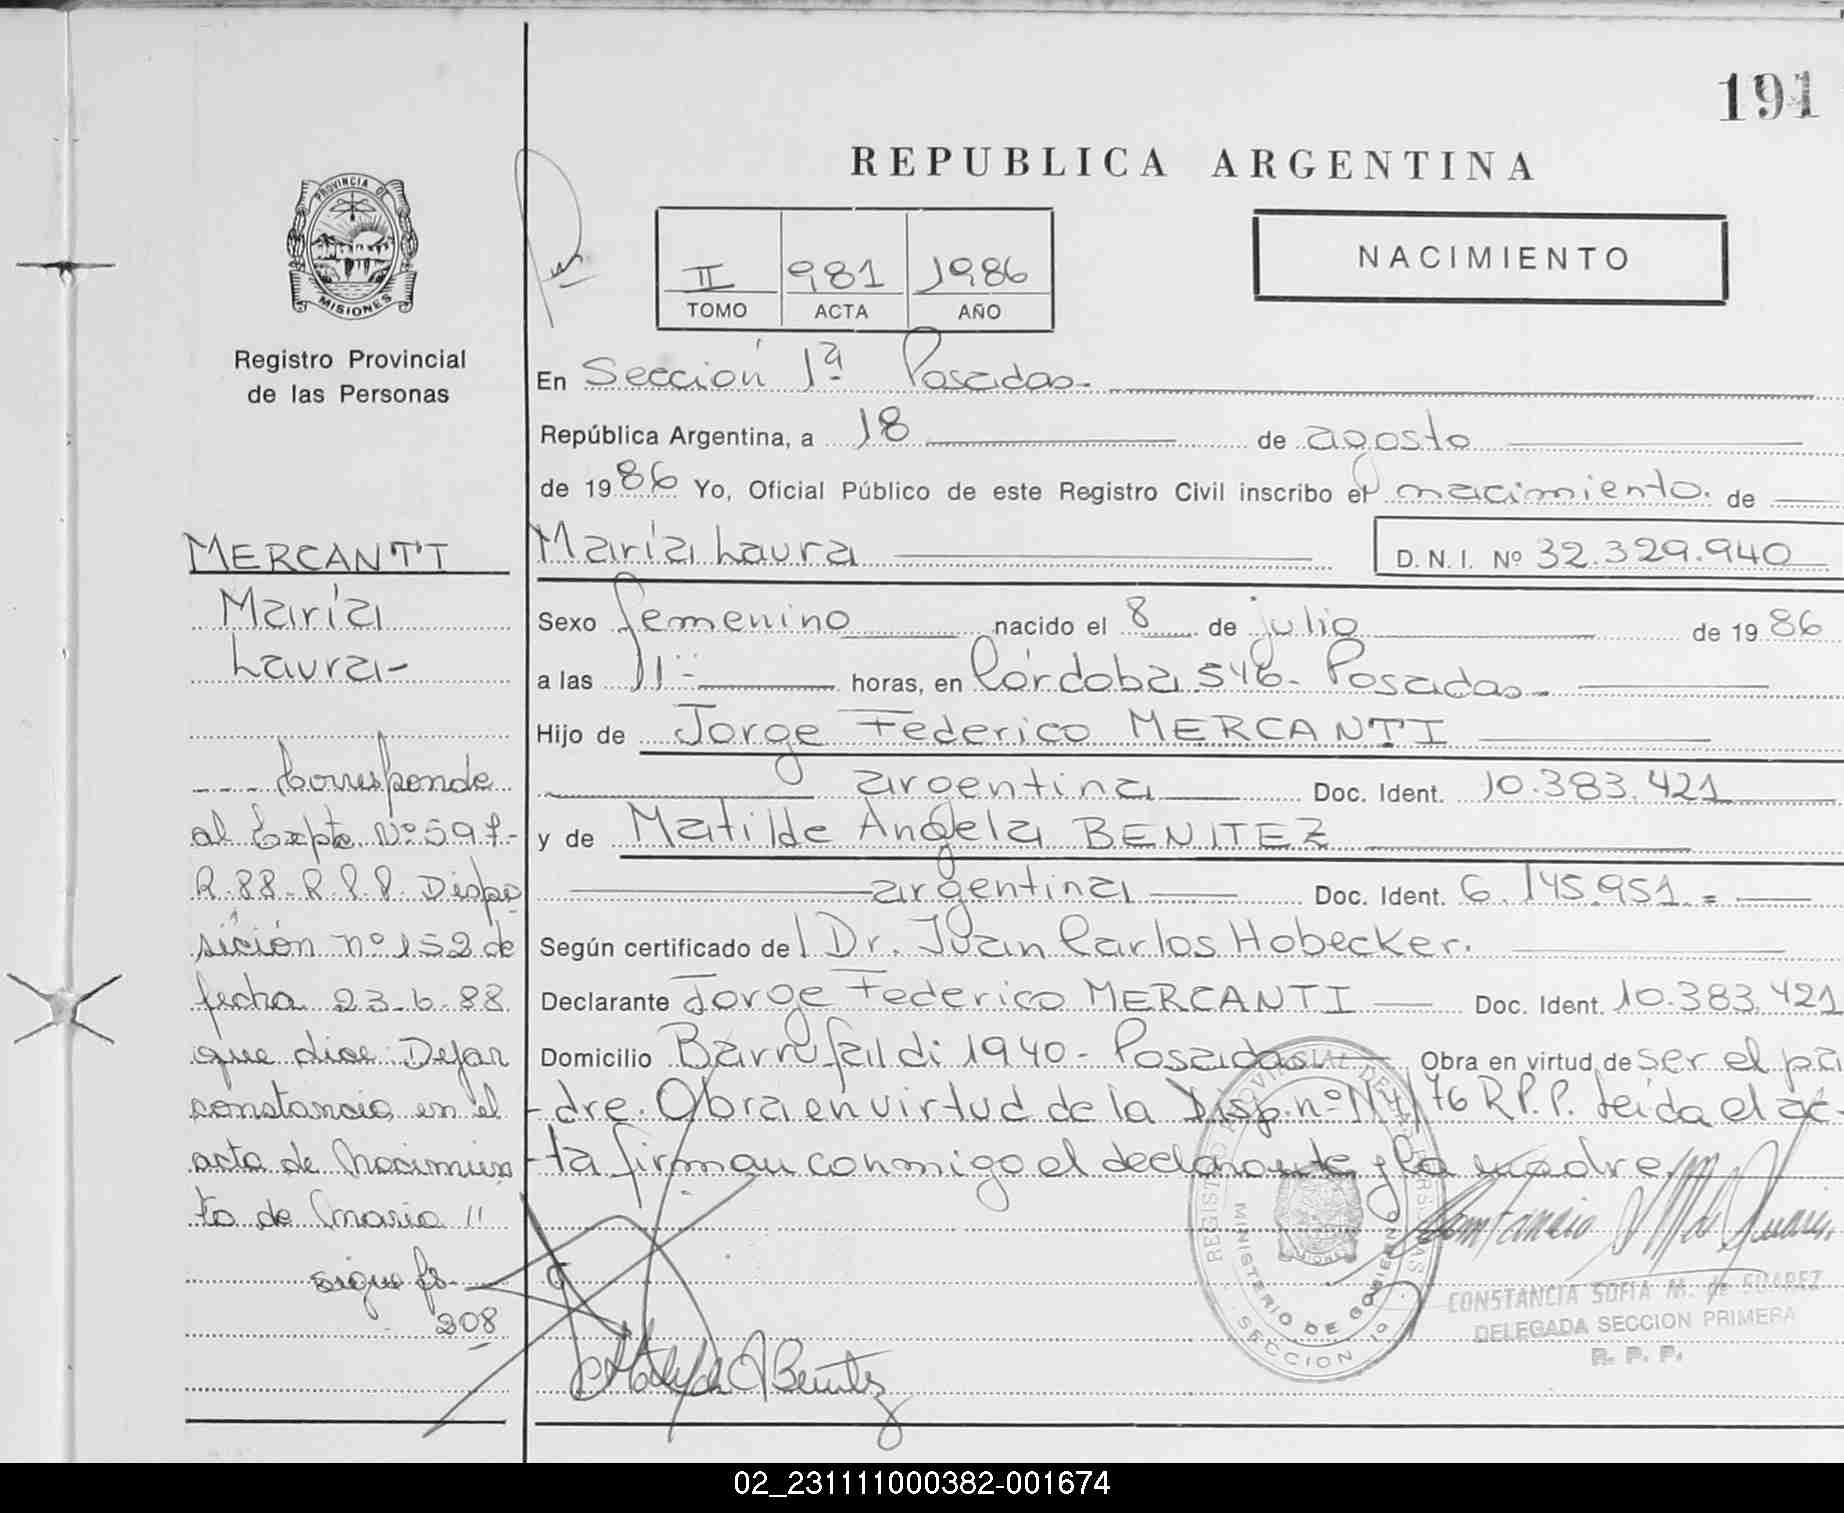 191
REPUBLICA ARGENTINA
PROVINCIA DE
MISIONES
Registro Provincial
de las Personas
II 981 1986
TOMO ACTA AÑO
NACIMIENTO
En Sección 1ª Posadas.
República Argentina, a 18 de agosto
de 1986 Yo, Oficial Público de este Registro Civil inscribo el nacimiento. de
María Laura D.N.I. Nº 32.329.940
Sexo femenino nacido el 8 de julio de 1986
a las 11 horas, en Córdoba 546 - Posadas.
Hijo de Jorge Federico MERCANTI
argentina Doc. Ident. 10.383.421
y de Matilde Angela BENITEZ
argentina Doc. Ident. 6.145.951.=
Según certificado de Dr. Juan Carlos Hobecker.
Declarante Jorge Federico MERCANTI Doc. Ident. 10.383.421
Domicilio Barrufaldi 1940 - Posadas Obra en virtud de ser el pa
-dre. Obra en virtud de la Disp. nº 76 R.P.P. Leída el ac-
-ta firman conmigo el declarante y la madre.
MERCANTI
María
Laura-
---- Corresponde
al Expte Nº 597-
R-88-R.P.P. Dispo
sición nº 152 de
fecha 23-6-88
que dice: Dejar
constancia en el
acta de Nacimien
to de María "
sigue fs.
208
Matilde A Benitez
REGISTRO PROVINCIAL DE LAS PERSONAS
MINISTERIO DE GOBIERNO
SECCION 1º
CONSTANCIA SOFIA M. de SUAREZ
DELEGADA SECCION PRIMERA
R. P. P.
02_231111000382-001674